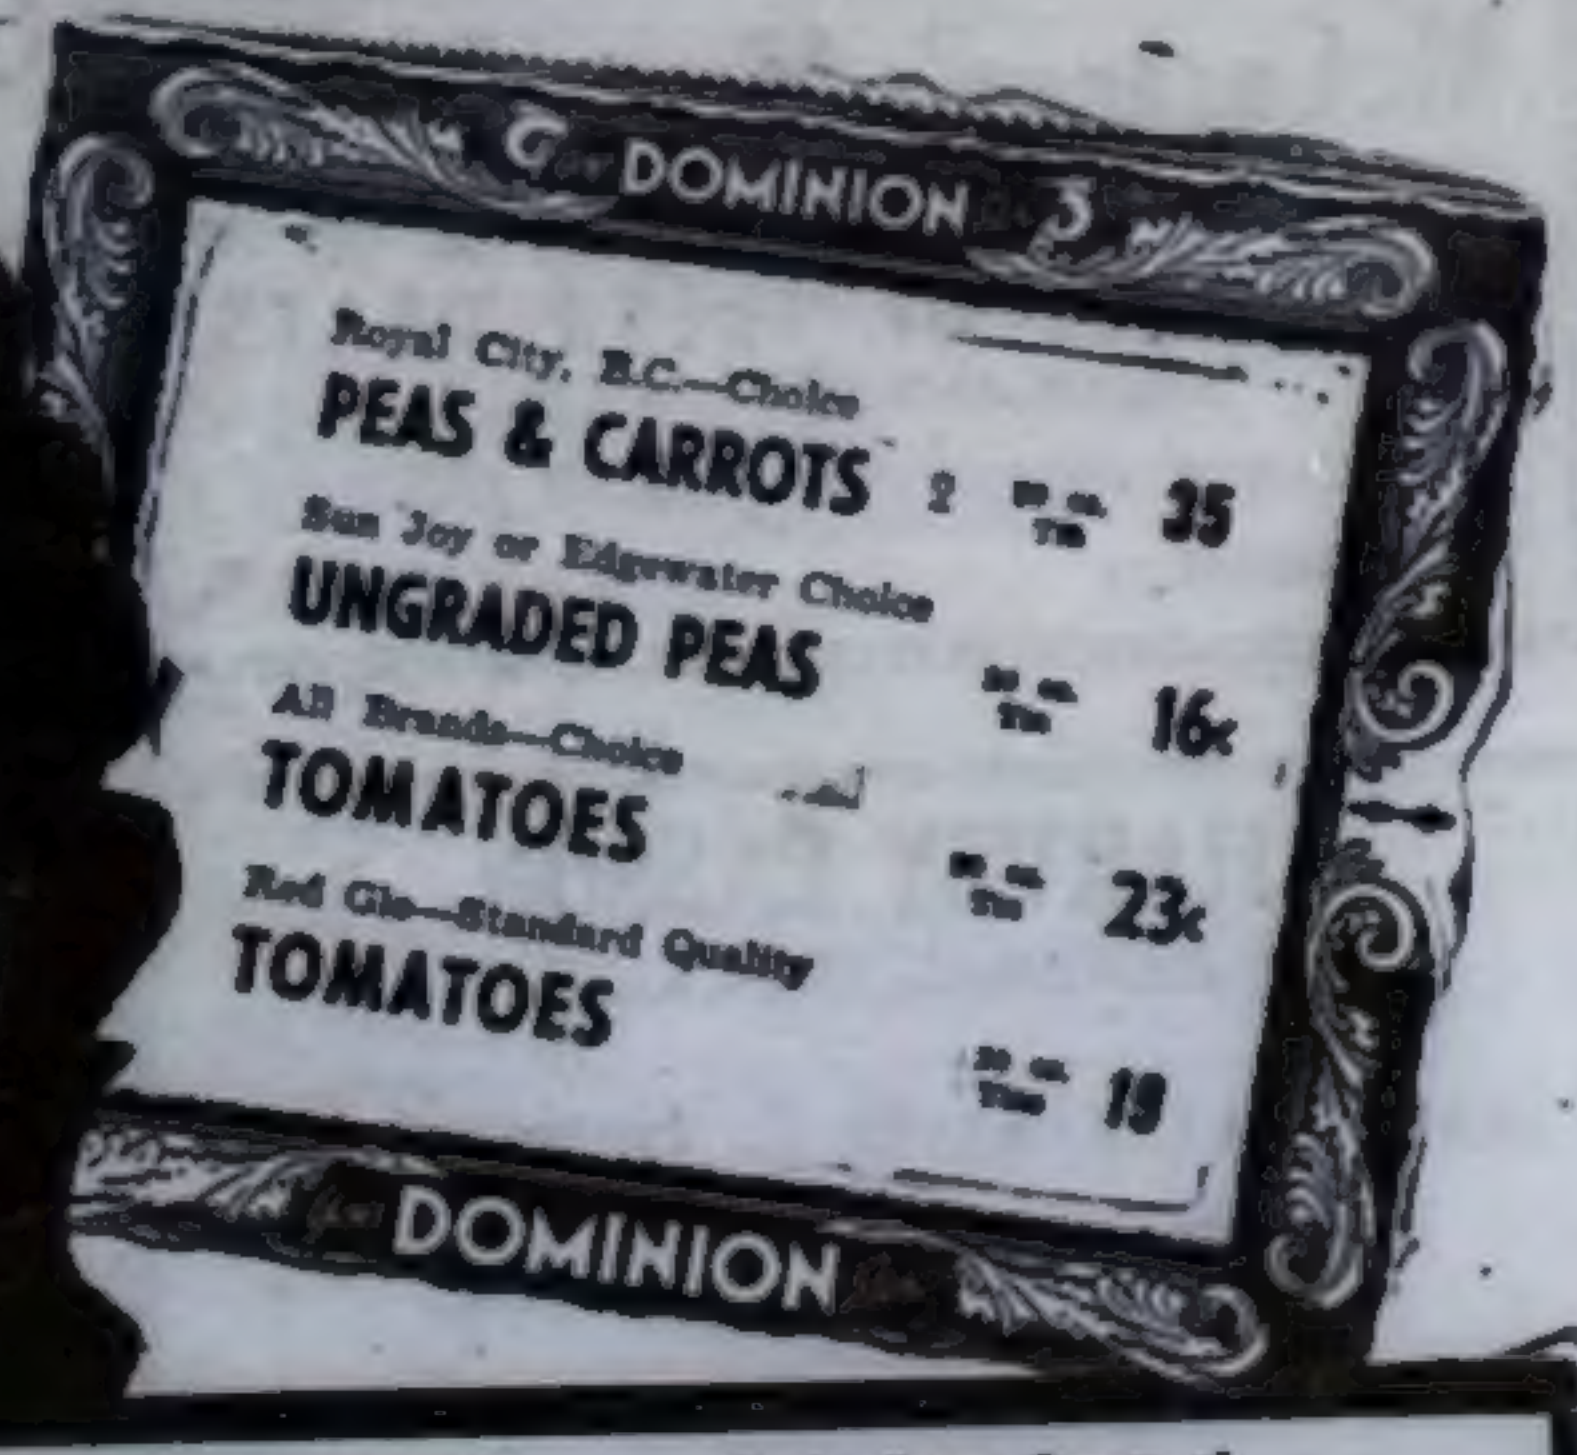 DOMINION
Royal City, B.C.—Choice
PEAS & CARROTS 2 20 oz. Tin 35
Sun Joy or Edgewater Choice
UNGRADED PEAS 20 oz. Tin 16c
All Brands—Choice
TOMATOES oz. Tin 23c
Red Glo—Standard Quality
TOMATOES 20 oz. Tin 19
DOMINION